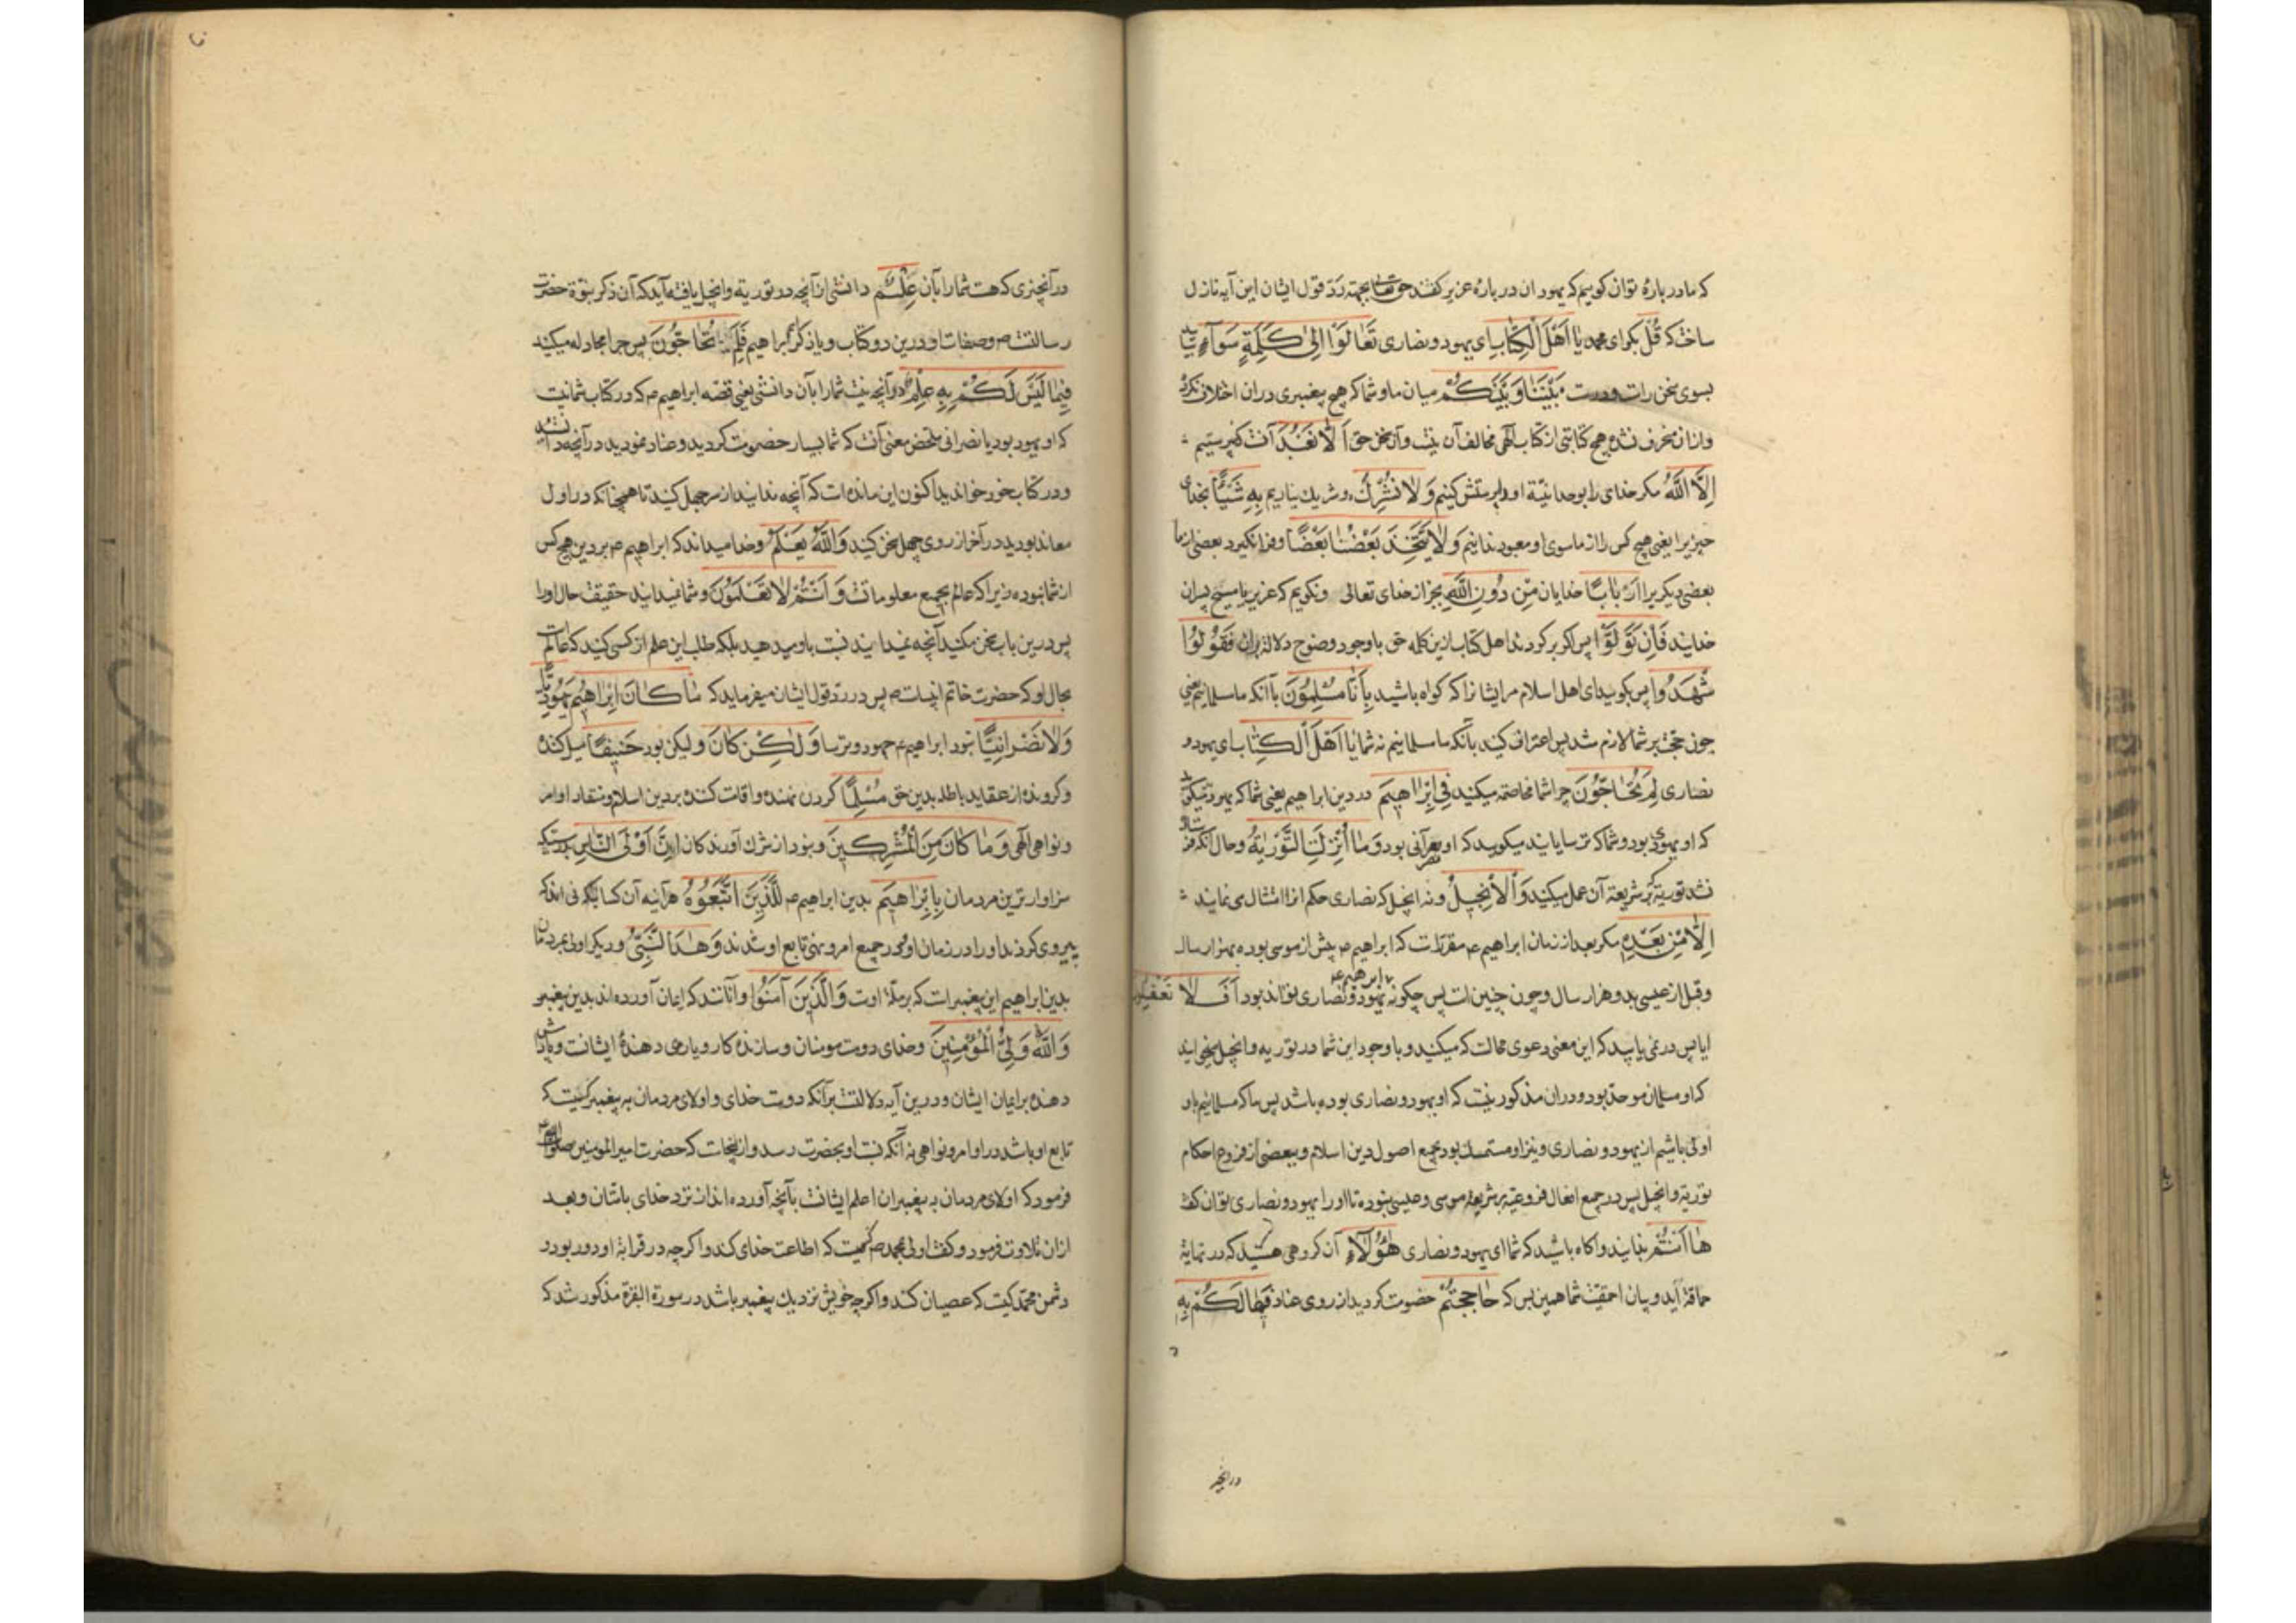 که ما در بارهٔ توان کوییم که یهودان در بارهٔ عزیر کفتند حق تعالی بجهته ردّ قول ایشان این آیه نازل
ساخت که قُلْ بکو ای محمد یٰا اَهْلَ الْکِتٰابِ ای یهود و نصاری تَعٰالَوْا اِلیٰ کَلِمَةٍ سَوٰآءٍ بیایید
بسوی سخن راست و درست بَیْنَنٰا وَ بَیْنَکُمْ میان ما و شما که هیچ پیغمبری در ان اختلاف نکرد
و از ان منحرف نشده هیچ کتابتی از کتاب الهی مخالف آن نیست و آن سخن حق اَلّٰا نَعْبُدَ آنست که نپرستیم
اِلَّا اللّٰهَ مکر خدای را بوحدانیّة او را پرستش کنیم وَ لٰا نُشْرِكَ و شریك نیاریم بِهِ شَیْئًا بخدای
چیزیرا یعنی هیچ کس را از ماسوی او معبود ندانیم وَ لٰا یَتَّخِذَ بَعْضُنٰا بَعْضًا و فرا نکیرد بعضی از ما
بعضی دیکر یرا اَرْبٰابًا خدایان مِنْ دُونِ اللّٰهِ بجز از خدای تعالی و نکوییم که عزیر یا مسیح پسران
خدایند فَاِنْ تَوَلَّوْا پس اکر برکردند اهل کتاب ازین کلمه حق با وجود وضوح دلالة بران فَقُولُوا
شْهَدُوا پس بکویید ای اهل اسلام مر ایشانرا که کواه باشید بِاَنّٰا مُسْلِمُونَ بآنکه ما مسلمانیم یعنی
چون حجّت بر شما لازم شد پس اعتراف کنید بآنکه ما مسلمانیم نه شما یٰا اَهْلَ الْکِتٰابِ ای یهود و
نصاری لِمَ تُحٰاجُّونَ چرا شما مخاصمه میکنید فِی اِبْرٰاهِیمَ در دین ابراهیم یعنی شما که یهودید میکویید
که او یهودی بود و شما که ترسایانید میکویید که او نصرانی بود وَ مٰا اُنْزِلَتِ التَّوْرٰیةُ و حال آنکه فرستاده
نشد توریة که بشریعة آن عمل میکنید وَ الْاِنْجِیلُ و نه انجیل که نصاری حکم انرا امتثال می نمایند
اِلّٰا مِنْ بَعْدِهِ مکر بعد از زمان ابراهیم ع مقرّراست که ابراهیم ع پیش از موسی بوده بهزار سال
و قبل از عیسی بدو هزار سال و چون چنین است پس چکونه ابراهیم ع یهود و نصاری تواند بود اَفَلٰا تَعْقِلُونَ
ایا پس در نمی یابید که این معنی دعوی محالست که میکنید و با وجود این شما در توریة و انجیل میخوانید
که او مسلمان موحّد بود و دران مذکور نیست که او یهود و نصاری بوده باشد پس ما که مسلمانیم باو
اولی باشیم از یهود و نصاری و نیز او متمسك بود بجمیع اصول دین اسلام و ببعضی از فروع احکام
توریة و انجیل پس در جمیع افعال فروعیّه بر شریعة موسی و عیسی نبوده تا او را یهود و نصاری توان کفت
هٰا اَنْتُمْ بدانید و اکاه باشید که شما ای یهود و نصاری هٰؤُلٰآءِ آن کروهی هستید که در نهایة
حماقة آید و بیان احمقیّت شما همین بس که حٰاجَجْتُمْ خصومت کردید از روی عناد فِیمٰا لَکُمْ بِهِ
در آنچیز
در آنچیزی که هست شما را بآن عِلْمٌ دانشی از آنچه در توریة و انجیل یافته اید که آن ذکر نبوّة حضرت
رسالت ص و صفات او درین دو کتاب و یا ذکر ابراهیم فَلِمَ تُحٰاجُّونَ پس چرا مجادله میکنید
فِیمٰا لَیْسَ لَکُمْ بِهِ عِلْمٌ در آنچه نیست شما را بآن دانشی یعنی قصّه ابراهیم ع که در کتاب شما نیست
که او یهود بود یا نصرانی ملخّص معنی آنست که شما بسیار خصومت کردید و عناد نمودید در آنچه دانستید
و در کتاب خود خواندید اکنون این مانده است که آنچه ندانید از سر جهل کنید تا همچنانکه در اول
معاند بودید در آخر از روی جهل سخن کنید وَ اللّٰهُ یَعْلَمُ و خدا میداند که ابراهیم ع بر دین هیچ کس
از شما نبوده زیرا که عالم بجمیع معلوماتست وَ اَنْتُمْ لٰا تَعْلَمُونَ و شما نمیدانید حقیقت حال او را
پس درین باب سخن مکنید آنچه نمیدانید نسبت باو مدهید بلکه طلب این علم از کسی کنید که عالمست
بحال او که حضرت خاتم انبیاست ص پس در ردّ قول ایشان میفرماید که مٰا کٰانَ اِبْرٰاهِیمُ یَهُودِیًّا
وَ لٰا نَصْرٰانِیًّا نبود ابراهیم ع جهود و ترسا وَ لٰکِنْ کٰانَ و لیکن بود حَنِیفًا میل کننده
و کرونده از عقاید باطله بدین حق مُسْلِمًا کردن نهنده و اقامت کننده بر دین اسلام و منقاد اوامر
و نواهی الهی وَ مٰا کٰانَ مِنَ الْمُشْرِکِینَ و نبود از شرك آورندکان اِنَّ اَوْلَی النّٰاسِ بدرستیکه
سزاوارترین مردمان بِاِبْرٰاهِیمَ بدین ابراهیم ع لَلَّذِینَ اتَّبَعُوهُ هر آینه آن کسانیکه فی اند که
پیروی کردند او را در زمان او و در جمیع امر و نهی تابع او شدند وَ هٰذَا النَّبِیُّ و دیکر اولی بمردمان
بدین ابراهیم این پیغمبر است که بر ملّة اوست وَ الَّذِینَ آمَنُوا و آنانند که ایمان آورده اند بدین پیغمبر
وَ اللّٰهُ وَلِیُّ الْمُؤْمِنِینَ و خدای دوست مومنان و سازنده کار و یاری دهندهٔ ایشانست و پاداش
دهنده بر ایمان ایشان و درین آیه دلالتست بر آنکه دوست خدای و اولای مردمان به پیغمبر کسیست که
تابع او باشد در اوامر و نواهی نه آنکه نسب او بحضرت رسد و از اینجاست که حضرت امیر المومنین صلوات الله
فرمود که اولای مردمان به پیغمبران اعلم ایشانست بآنچه آورده اند از نزد خدای باشان و بعد
ازان تلاوت فرمود و کفت اولی بمحمد ص کسیست که اطاعت خدای کند و اکرچه در قرابة او دور بود و
دشمن محمّد کسیست که عصیان کند و اکرچه خویش نزدیك پیغمبر باشد در سورة البقرة مذکور شد که